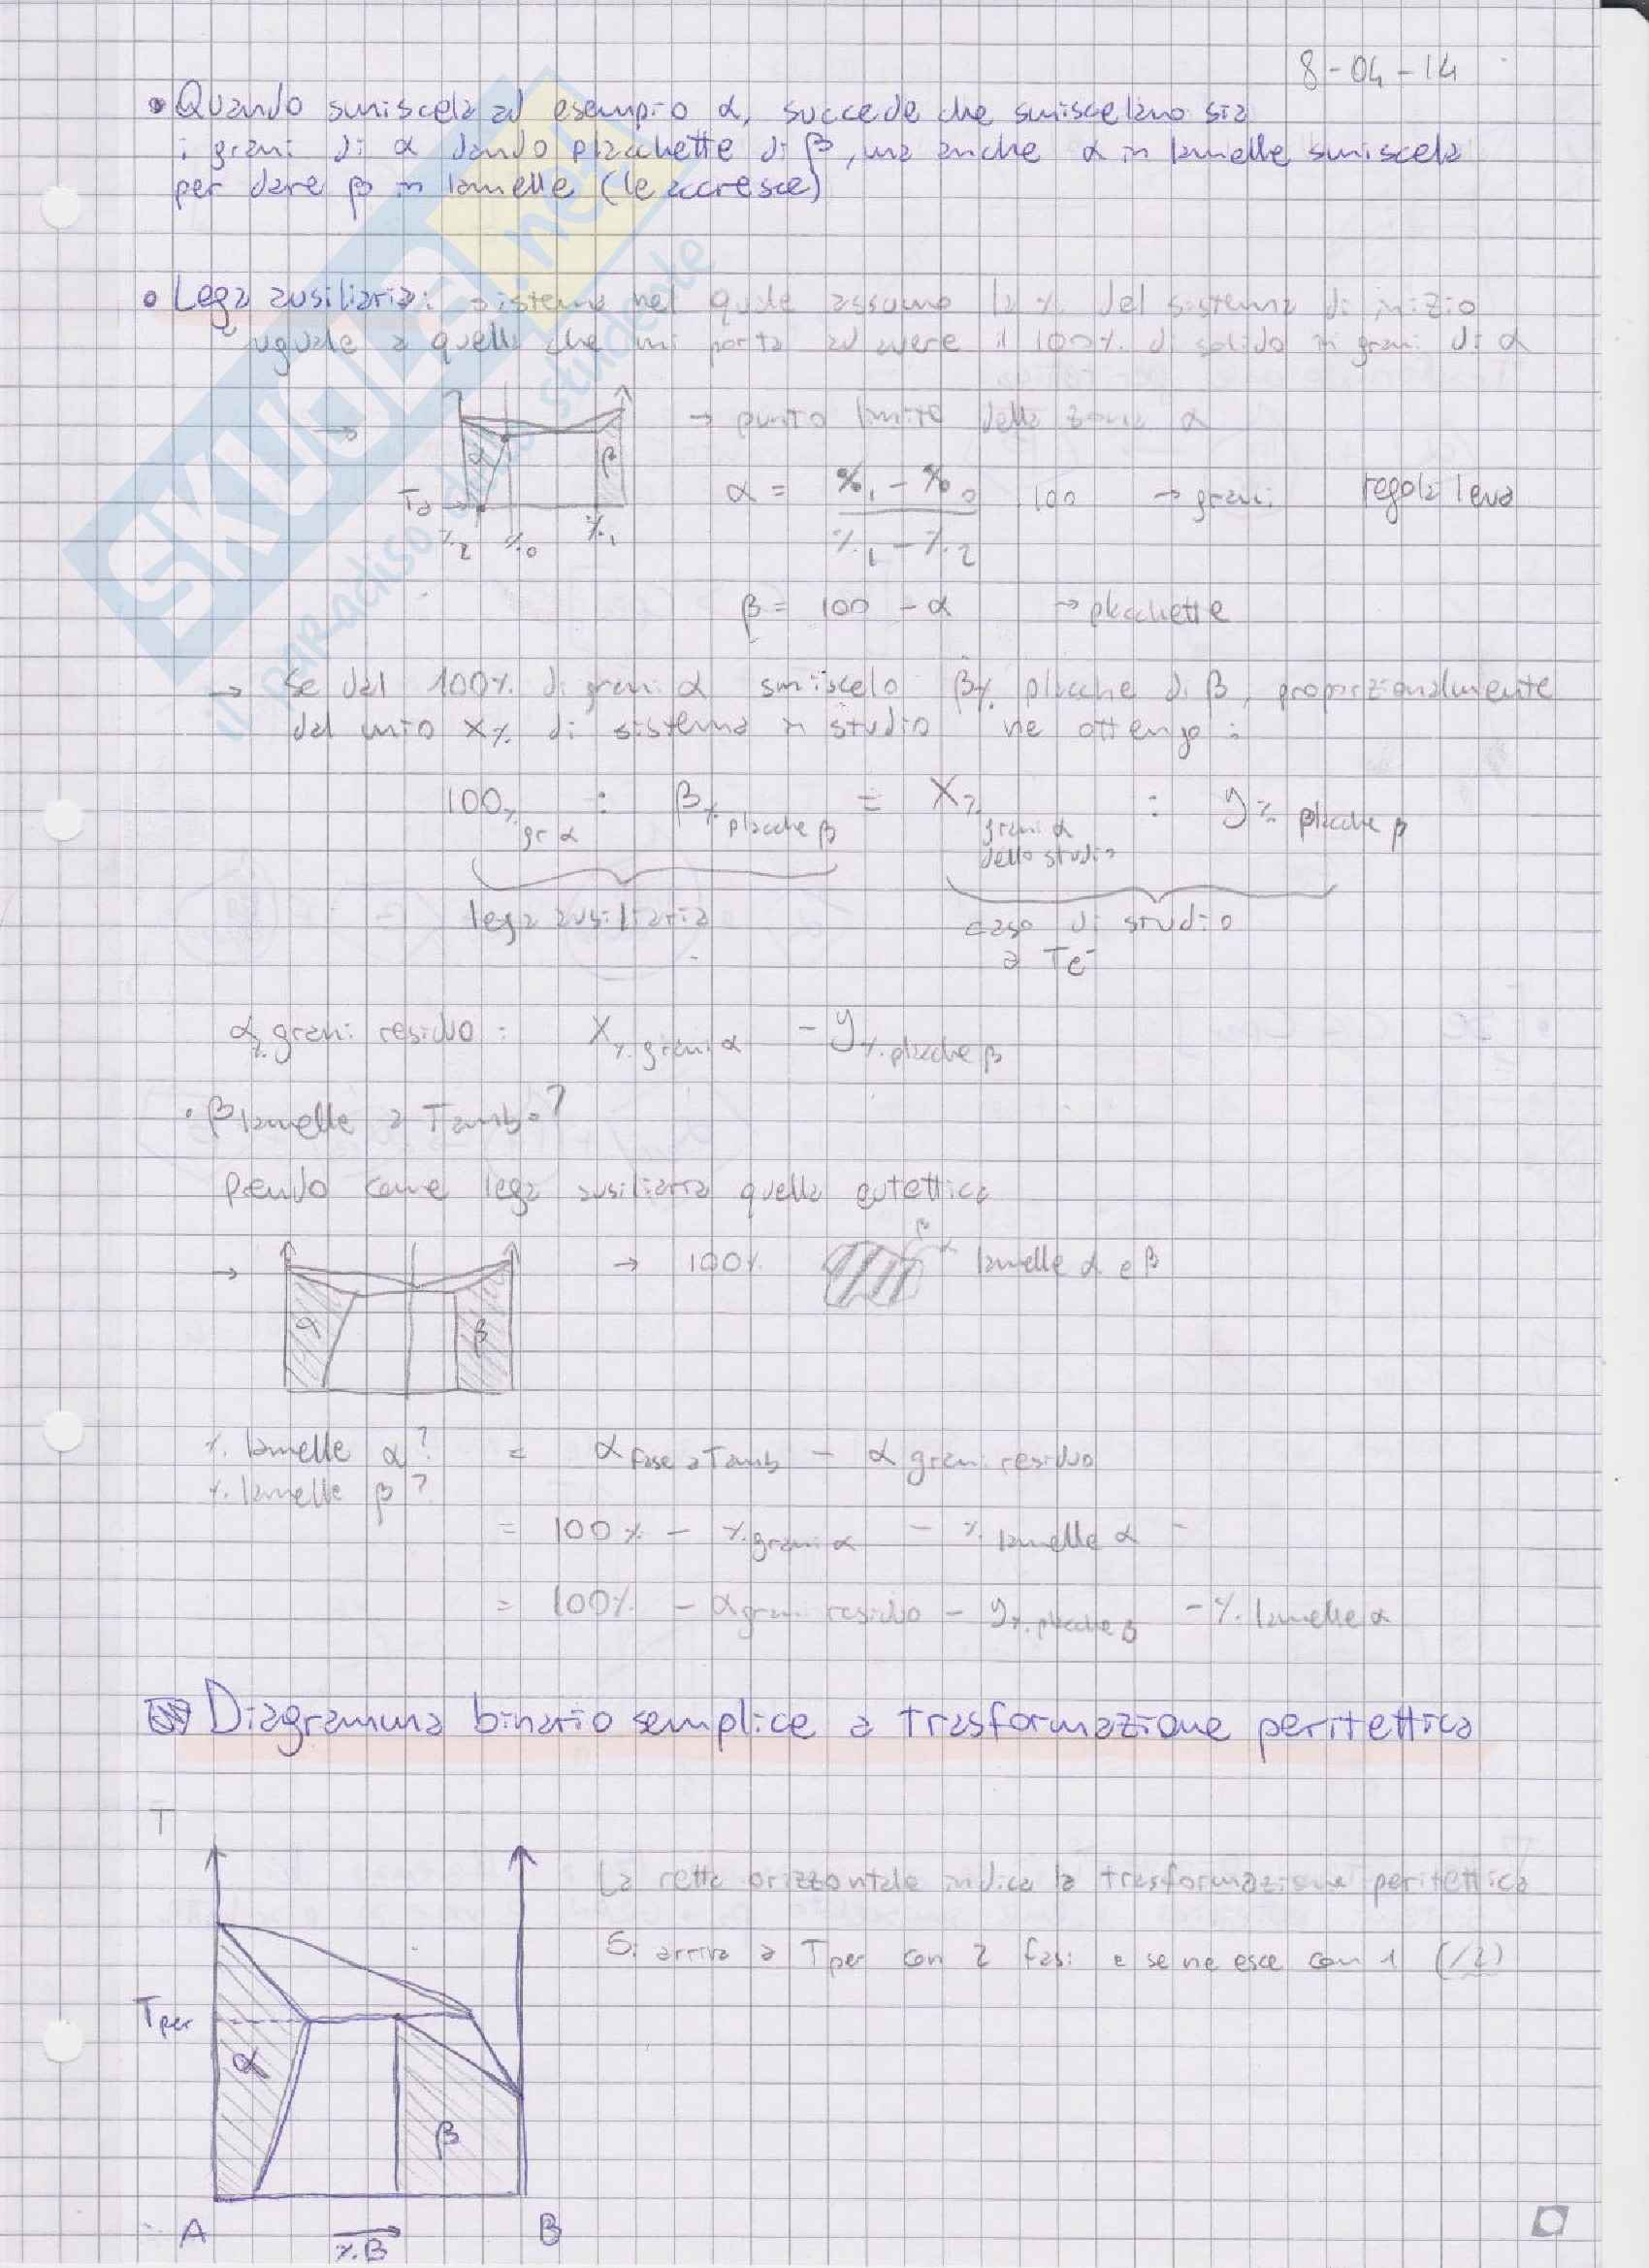 8-04-14
• Quando smiscela ad esempio α, succede che smiscelano sia
i grani di α dando placchette di β, ma anche α in lamelle smiscela
per dare β in lamelle (le accresce)
• Lega ausiliaria: sistema nel quale assumo la % del sistema di inizio
uguale a quella che mi porta ad avere il 100% di solido in grani di α
→ punto limite della zona α
α β
Ta
%2 %0 %1
α = (%1 - %0) / (%1 - %2) 100 → grani regola leva
β = 100 - α → placchette
→ Se dal 100% di grani α smiscelo β% placche di β, proporzionalmente
dal mio x% di sistema in studio ne ottengo:
100% gr α : β% placche β = X% grani α dello studio : y% placche β
lega ausiliaria
caso di studio
a Te-
α% grani residuo: X% grani α - y% placche β
• β lamelle a Tamb.?
Prendo come lega ausiliaria quella eutettica
→ 100% β α lamelle α e β
α β
% lamelle α? = α fase a Tamb - α grani residuo
% lamelle β?
= 100% - % grani α - % lamelle α -
= 100% - α grani residuo - y% placche β - % lamelle α
Diagramma binario semplice a trasformazione peritettica
T
La retta orizzontale indica la trasformazione peritettica
Si arriva a Tper con 2 fasi e se ne esce con 1 (/2)
Tper
α
β
A %B B
SKUOLA.net
il paradiso dello studente